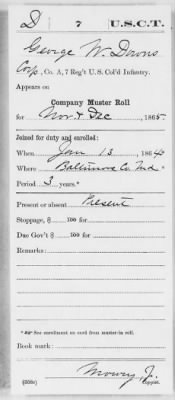 D | 7 | U.S.C.T.
George W. Downs
Corp, Co. A, 7 Reg't U.S. Col'd Infantry.
Appears on
Company Muster Roll
for Nov & Dec, 1865.
Joined for duty and enrolled:
When Jan 13, 1864
Where Baltimore Co. Md *
Period 3 years.*
Present or absent Present
Stoppage, $ 100 for
Due Gov't $ 100 for
Remarks:
* See enrollment on card from muster-in roll.
Book mark:
Mowry, J.
(358c) Copyist.